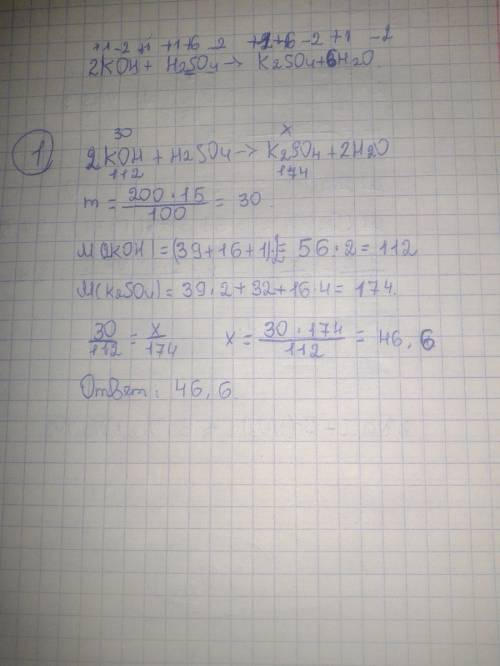 +1 -2 +1 +1 +6 -2 +1 +6 -2 +1 -2
2KOH + H2SO4 → K2SO4 + 6H2O.
1
30 x
2KOH + H2SO4 → K2SO4 + 2H2O
112 174
m = 200 · 15 / 100 = 30
M(2KOH) = (39+16+1)·2 = 56 · 2 = 112
M(K2SO4) = 39 · 2 + 32 + 16 · 4 = 174.
30/112 = x/174 x = 30 · 174 / 112 = 46,6
Ответ: 46,6.